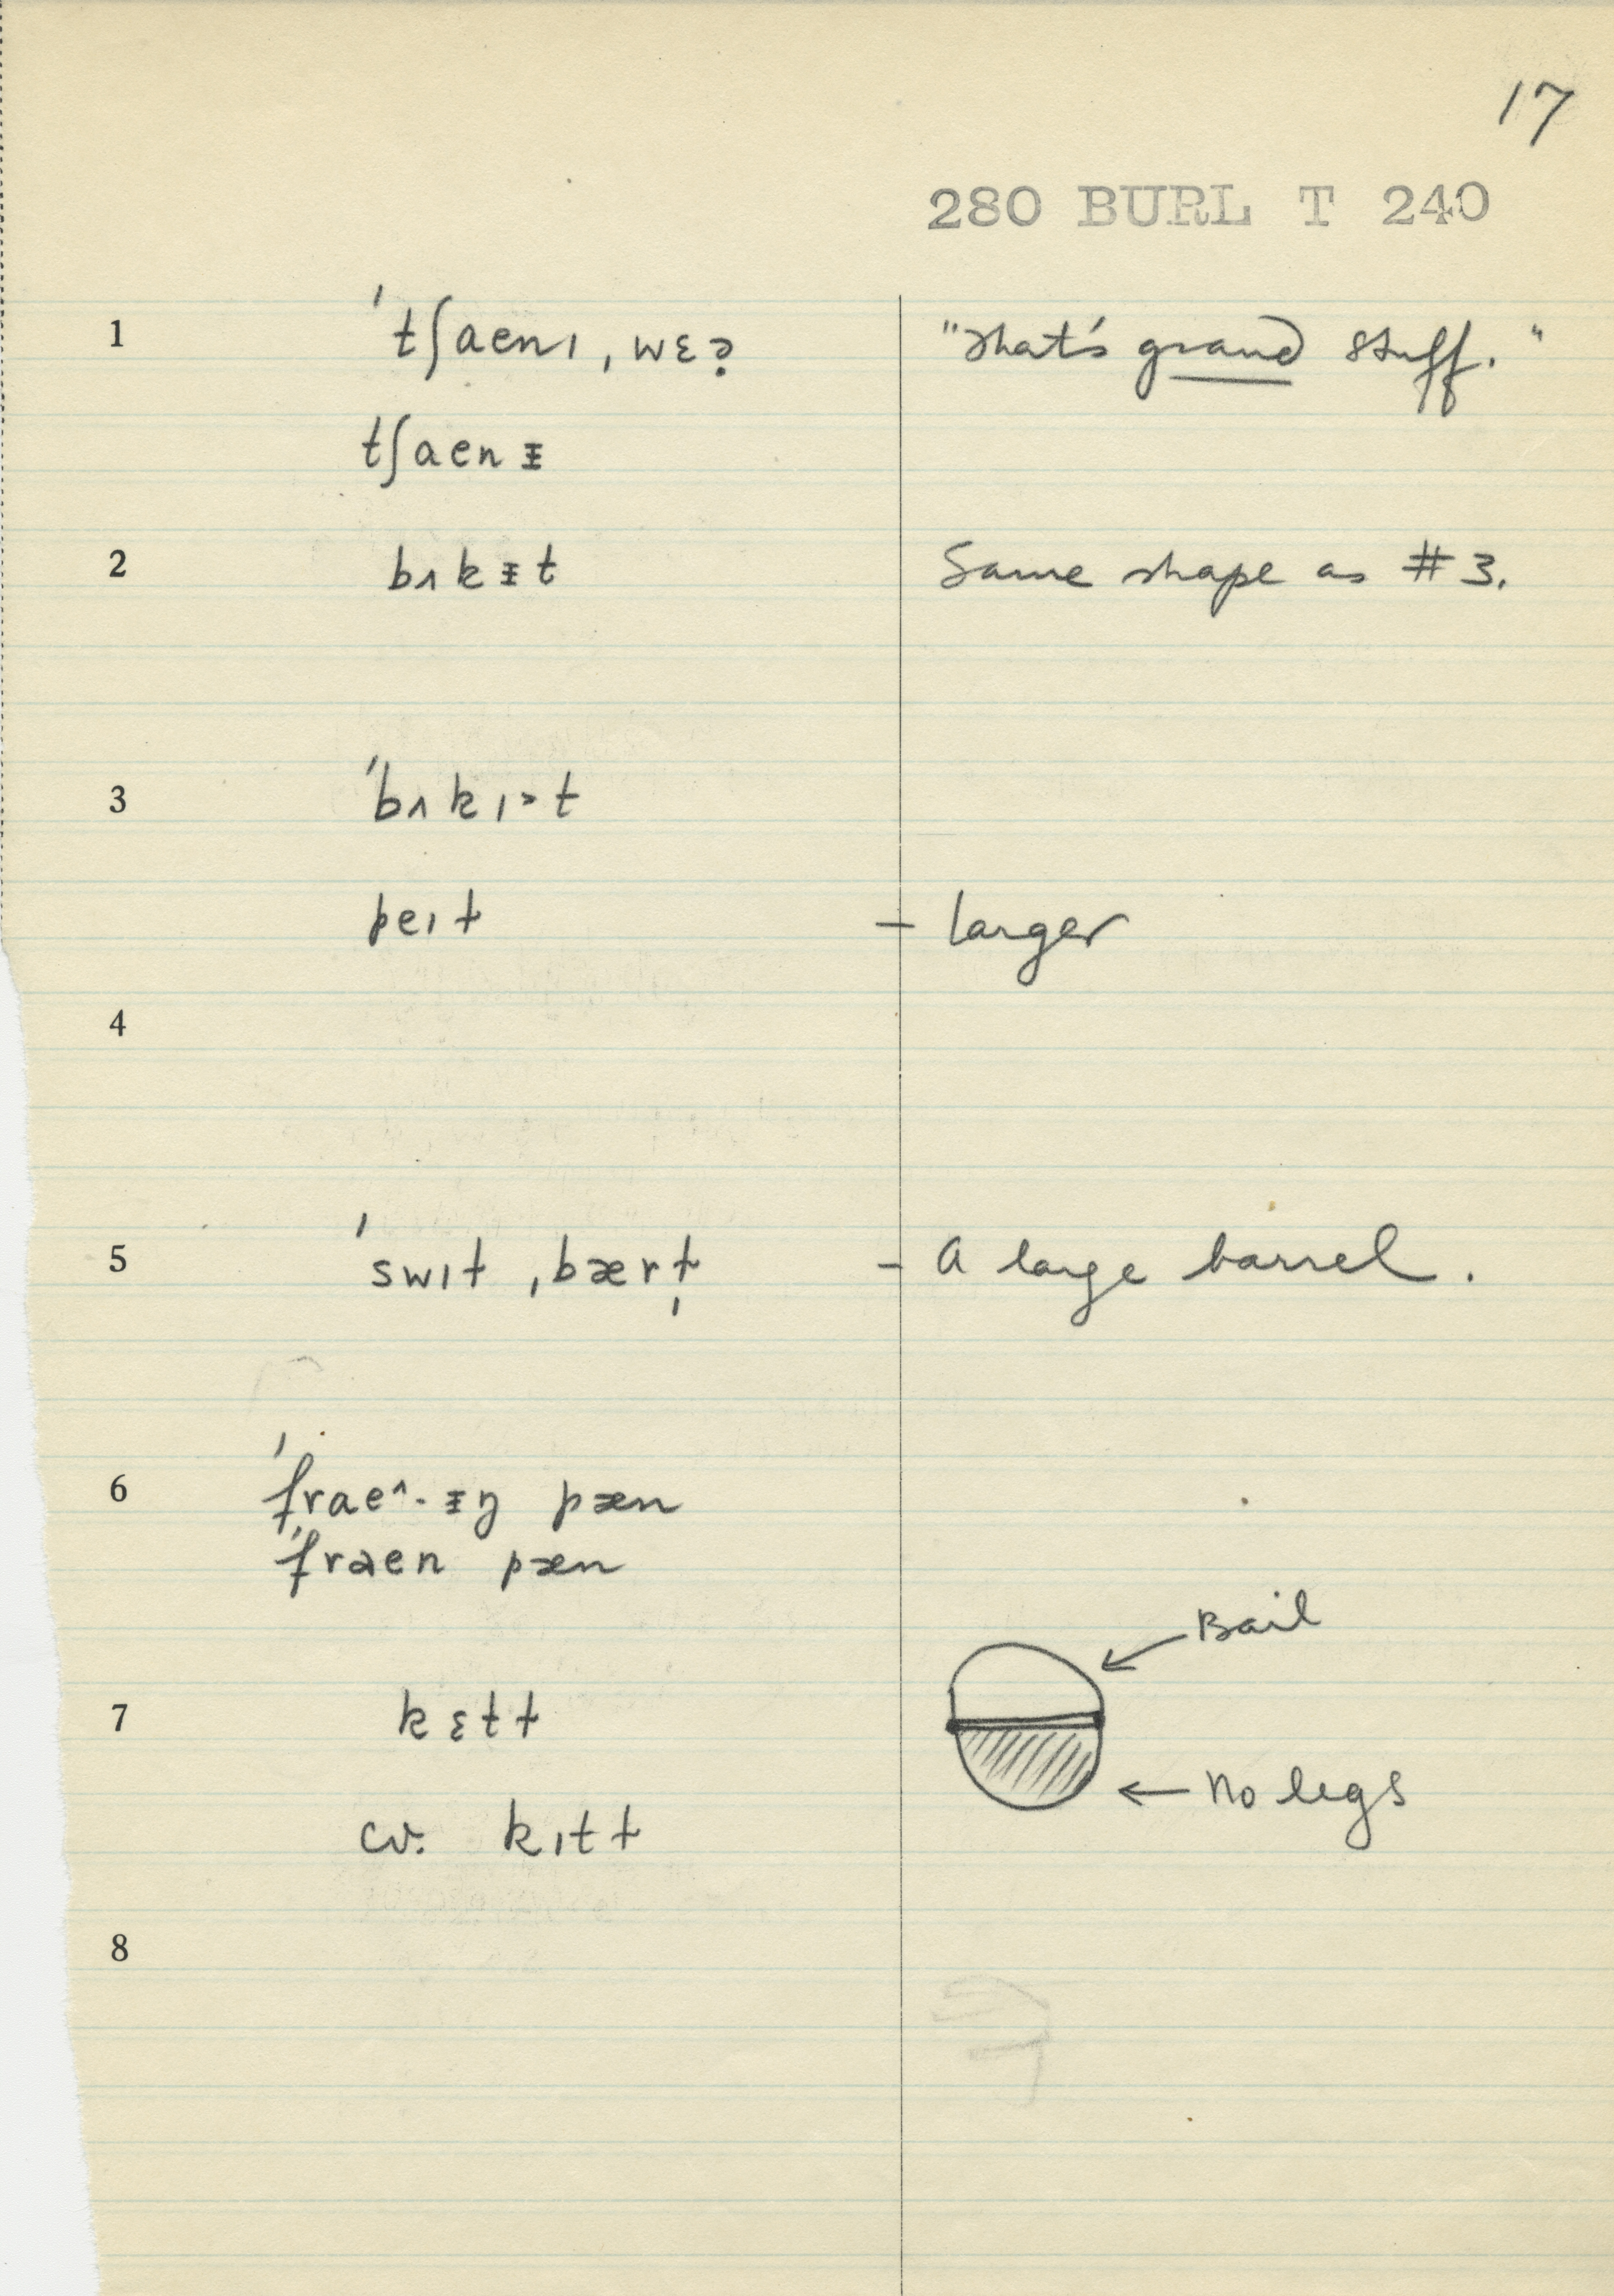 17
280 BURL T 240
1 ˈtʃaenɪ ˌwɛə̣ "That's grand stuff."
tʃaenᵻ
2 bʌkᵻt Same shape as #3.
3 ˈbʌkɪ˃t
peɪɫ – larger
4
5 ˈswɪɫ ˌbærɫ̩ – A large barrel.
6 ˈfrae^·ᵻŋ pæn
ˈfraen pæn
Bail
7 kɛtɫ
No legs
cv. kɪtɫ
8